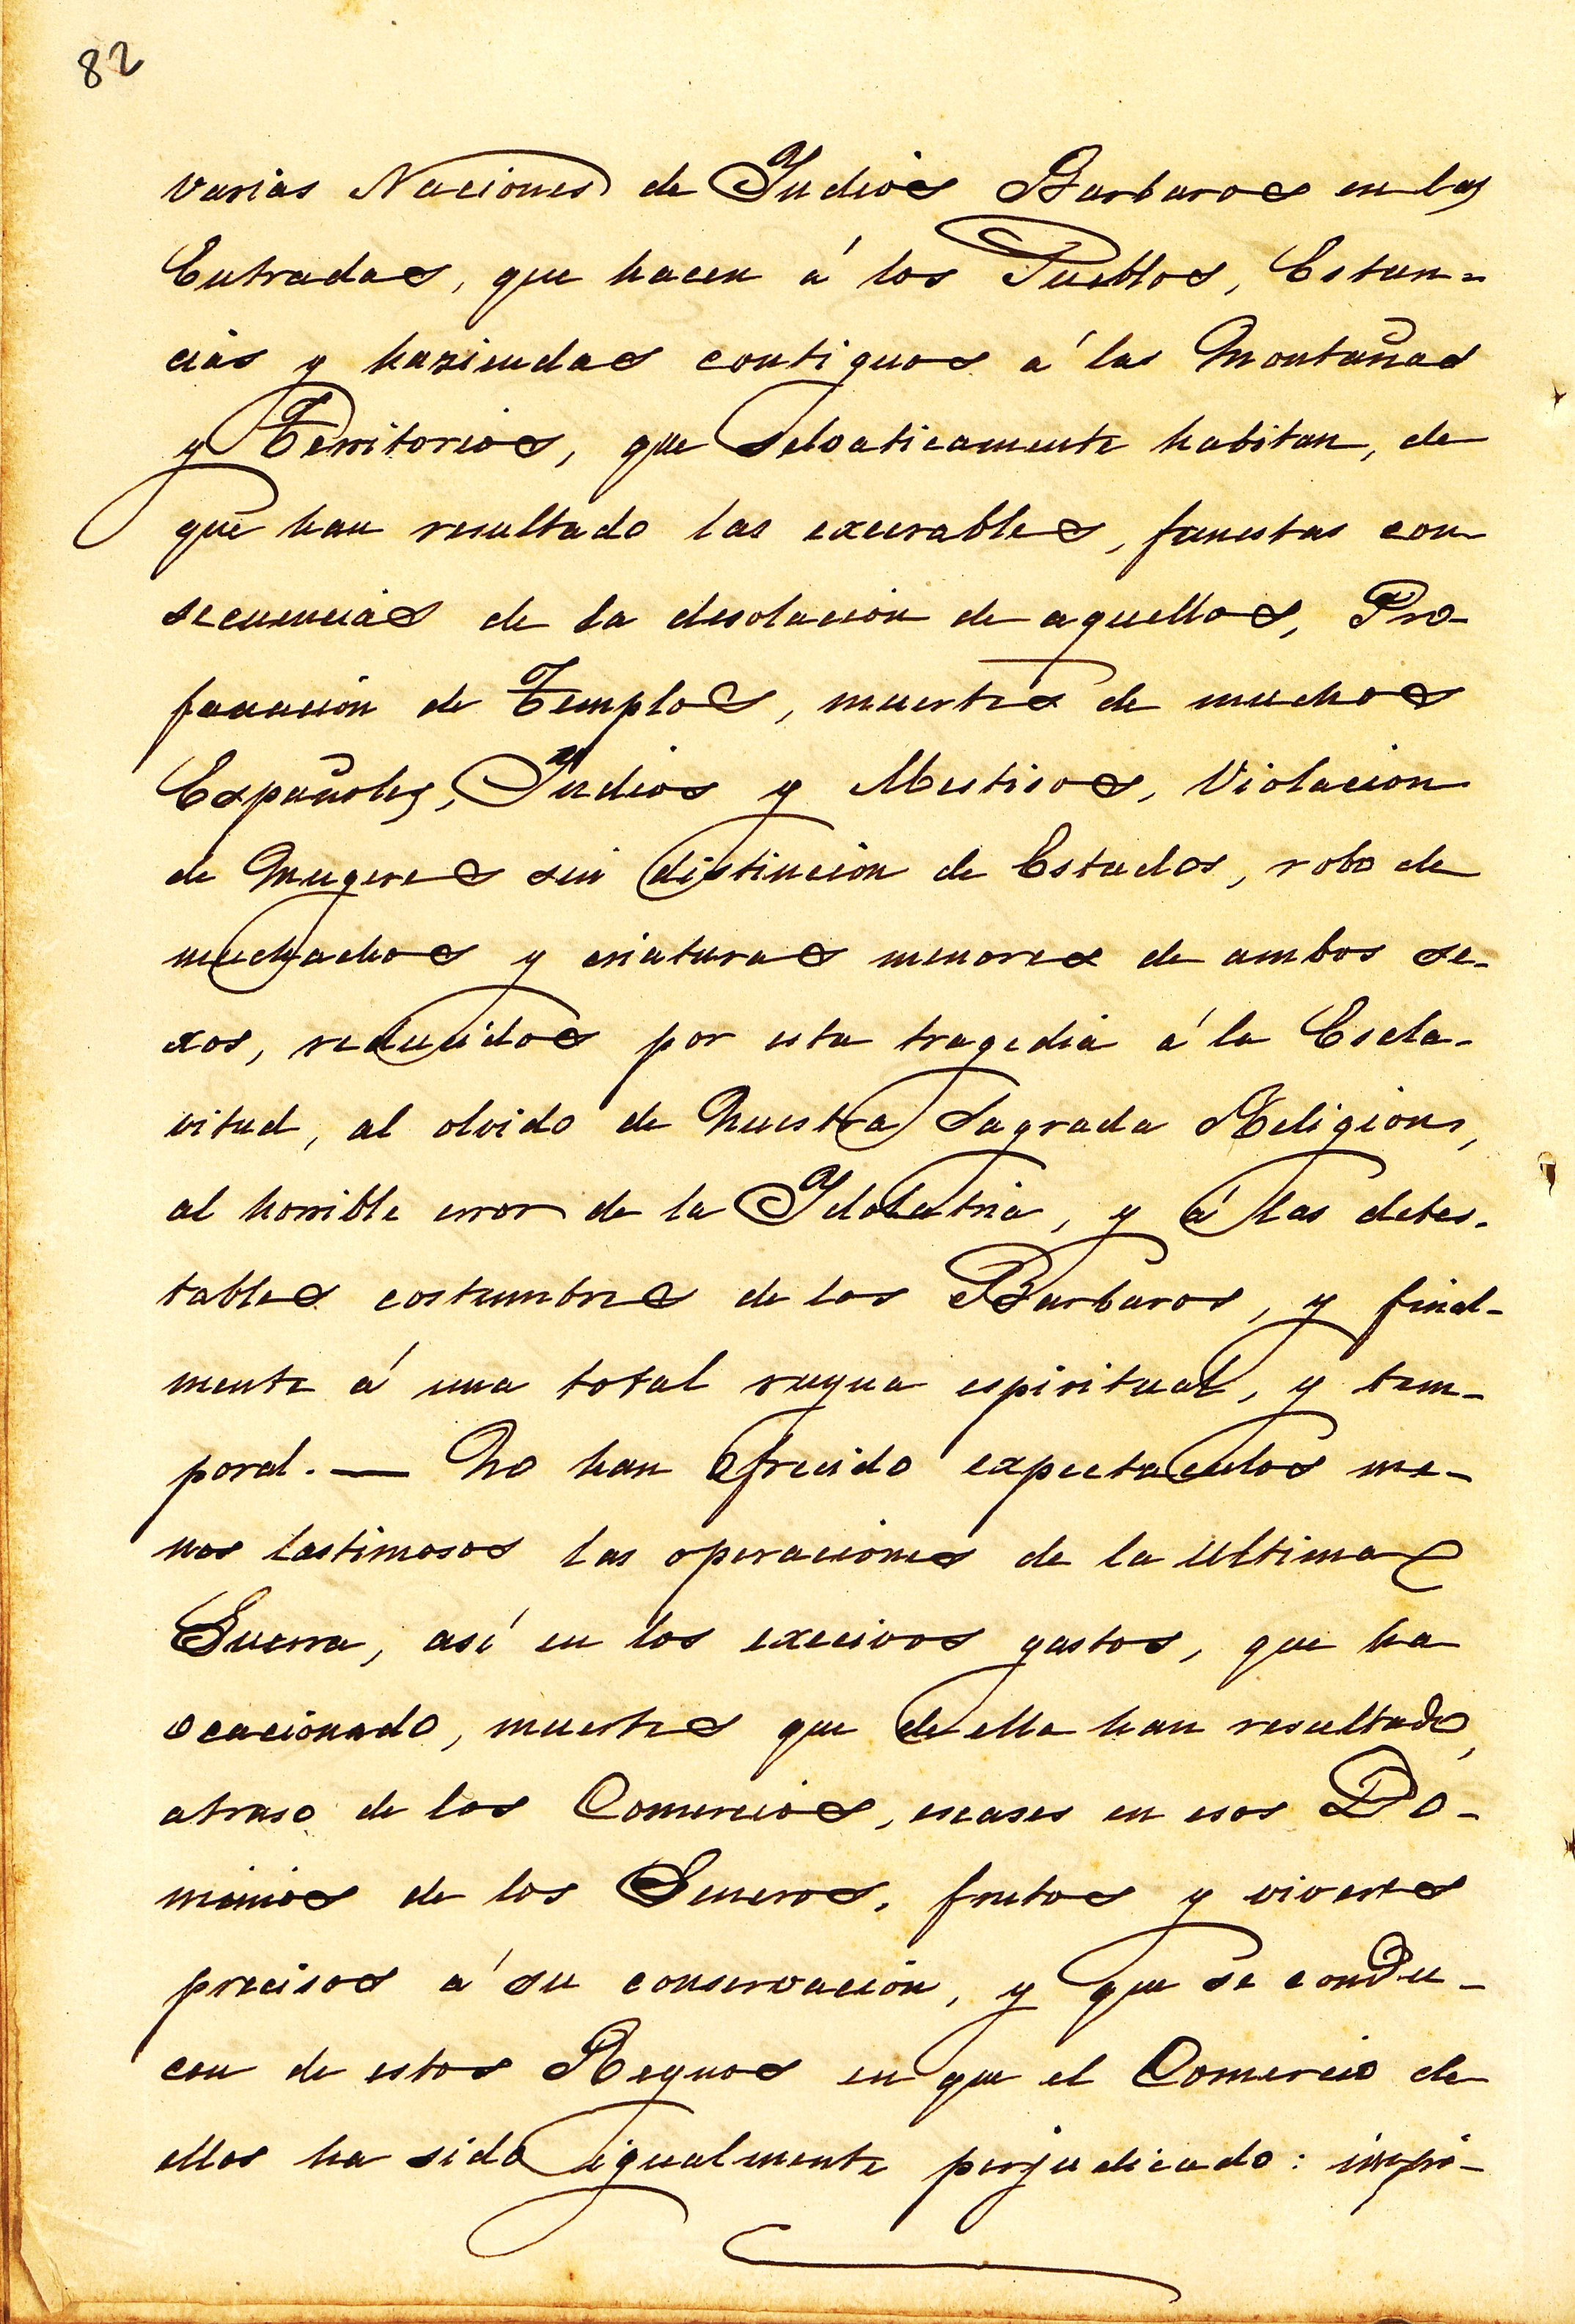 82
varias Naciones de Yndios Barbaros en las
Entradas, que hacen á los Pueblos, Estan=
cias y haziendas contiguos á las Montañas
y Territorios, que selvaticamente habitan, de
que han resultado las execrables, funestas con-
secuencias de la desolacion de aquellos, Pro-
fanacion de Templos, muertes de muchos
Españoles, Yndios y Mestisos, Violacion
de Mugeres sin distincion de Estados, robo de
muchachos y criaturas menores de ambos se-
xos, reducidos por esta tragedia á la Escla-
vitud, al olvido de Nuestra Sagrada Religion,
al horrible error de la Ydolatria, y á las detes-
tables costumbres de los Barbaros, y final-
mente á una total ruyna espiritual, y tem-
poral. — No han ofrecido expectaculos me-
nos lastimosos las operaciones de la Ultima
Guerra, así en los execivos gastos, que ha
ocacionado, muertes que de ella han resultado,
atraso de los Comercios, escases en esos Do-
minios de los Generos, frutos y viveres
precisos á su conservacion, y que se condu-
cen de estos Reynos en que el Comercio de
ellos ha sido igualmente perjudicado: impo-